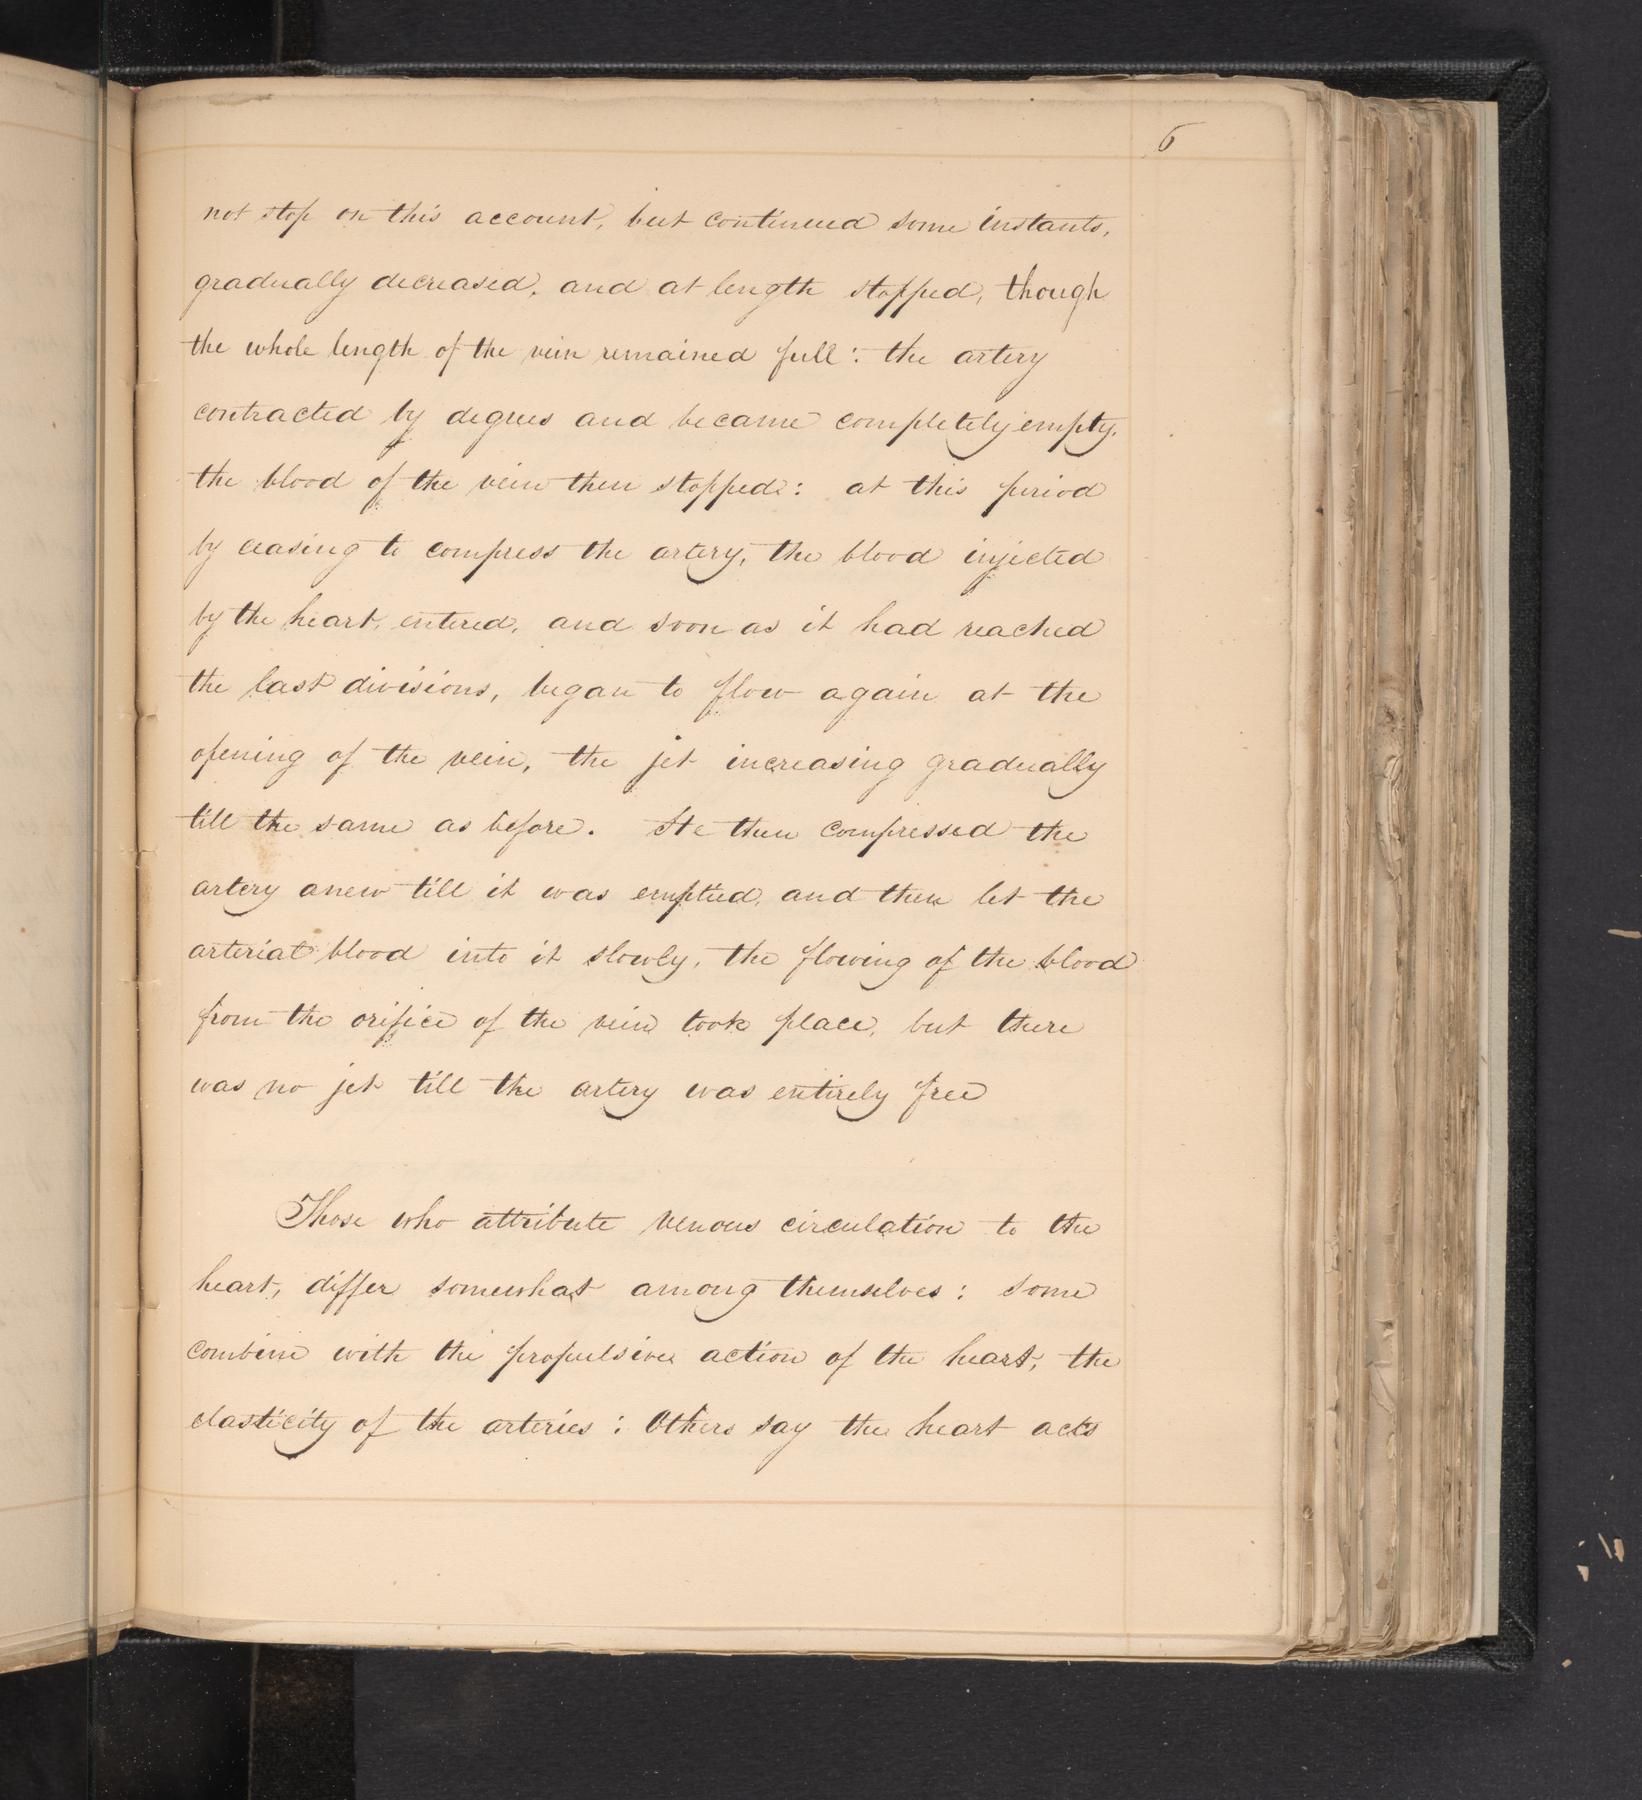 5
not stop on this account, but continued some instants,
gradually decreased, and at length stopped, though
the whole length of the vein remained full: the artery
contracted by degrees and became completely empty.
the blood of the vein then stopped: at this period
by ceasing to compress the artery, the blood injected
by the heart, entered, and soon as it had reached
the last divisions, began to flow again at the
opening of the vein, the jet increasing gradually
till the same as before. He then compressed the
artery anew till it was emptied, and then let the
arterial blood into it slowly, the flowing of the blood
from the orifice of the vein took place, but there
was no jet till the artery was entirely free
Those who attribute venous circulation to the
heart, differ somewhat among themselves: some
combine with the propulsive action of the heart, the
elasticity of the arteries: Others say the heart acts